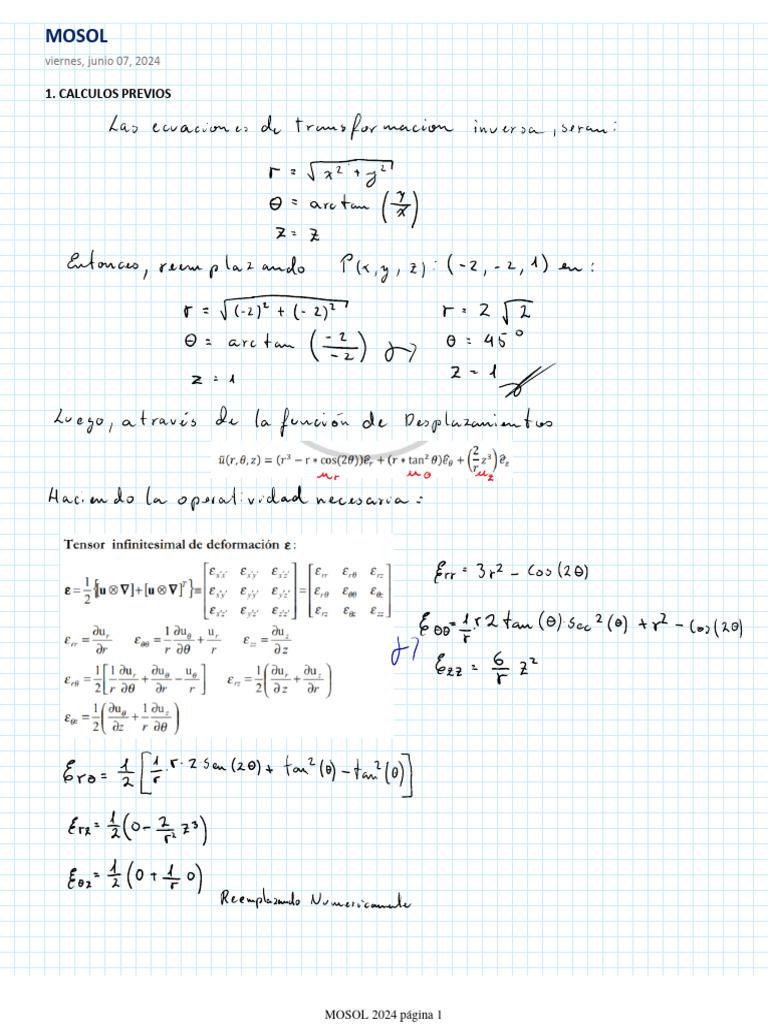 MOSOL
viernes, junio 07, 2024
1. CALCULOS PREVIOS
Las ecuaciones de transformacion inversa, seran:
r = √(x² + y²)
θ = arc tan (y/x)
z = z
Entonces, reemplazando P(x, y, z): (-2, -2, 1) en:
r = √((-2)² + (-2)²) r = 2√2
θ = arc tan (-2/-2) θ = 45°
z = 1 z = 1
Luego, através de la función de Desplazamientos
ū(r, θ, z) = (r³ − r * cos(2θ))ê_r + (r * tan² θ)ê_θ + (2/r z³)ê_z
u_r u_θ u_z
Haciendo la operatividad necesaria:
Tensor infinitesimal de deformación ε:
ε = 1/2 {[u ⊗ ∇] + [u ⊗ ∇]ᵀ} = [ε_x'x' ε_x'y' ε_x'z'; ε_x'y' ε_y'y' ε_y'z'; ε_x'z' ε_y'z' ε_z'z'] = [ε_rr ε_rθ ε_rz; ε_rθ ε_θθ ε_θz; ε_rz ε_θz ε_zz]
ε_rr = ∂u_r/∂r ε_θθ = 1/r ∂u_θ/∂θ + u_r/r ε_zz = ∂u_z/∂z
ε_rθ = 1/2 [1/r ∂u_r/∂θ + ∂u_θ/∂r − u_θ/r] ε_rz = 1/2 (∂u_r/∂z + ∂u_z/∂r)
ε_θz = 1/2 (∂u_θ/∂z + 1/r ∂u_z/∂θ)
ε_rr = 3r² − cos(2θ)
ε_θθ = 1/r · r 2 tan(θ) · sec²(θ) + r² − cos(2θ)
ε_zz = 6/r z²
ε_rθ = 1/2 [1/r · r · 2 · sen(2θ) + tan²(θ) − tan²(θ)]
ε_rz = 1/2 (0 − 2/r² z³)
ε_θz = 1/2 (0 + 1/r 0)
Reemplazando Numericamente
MOSOL 2024 página 1